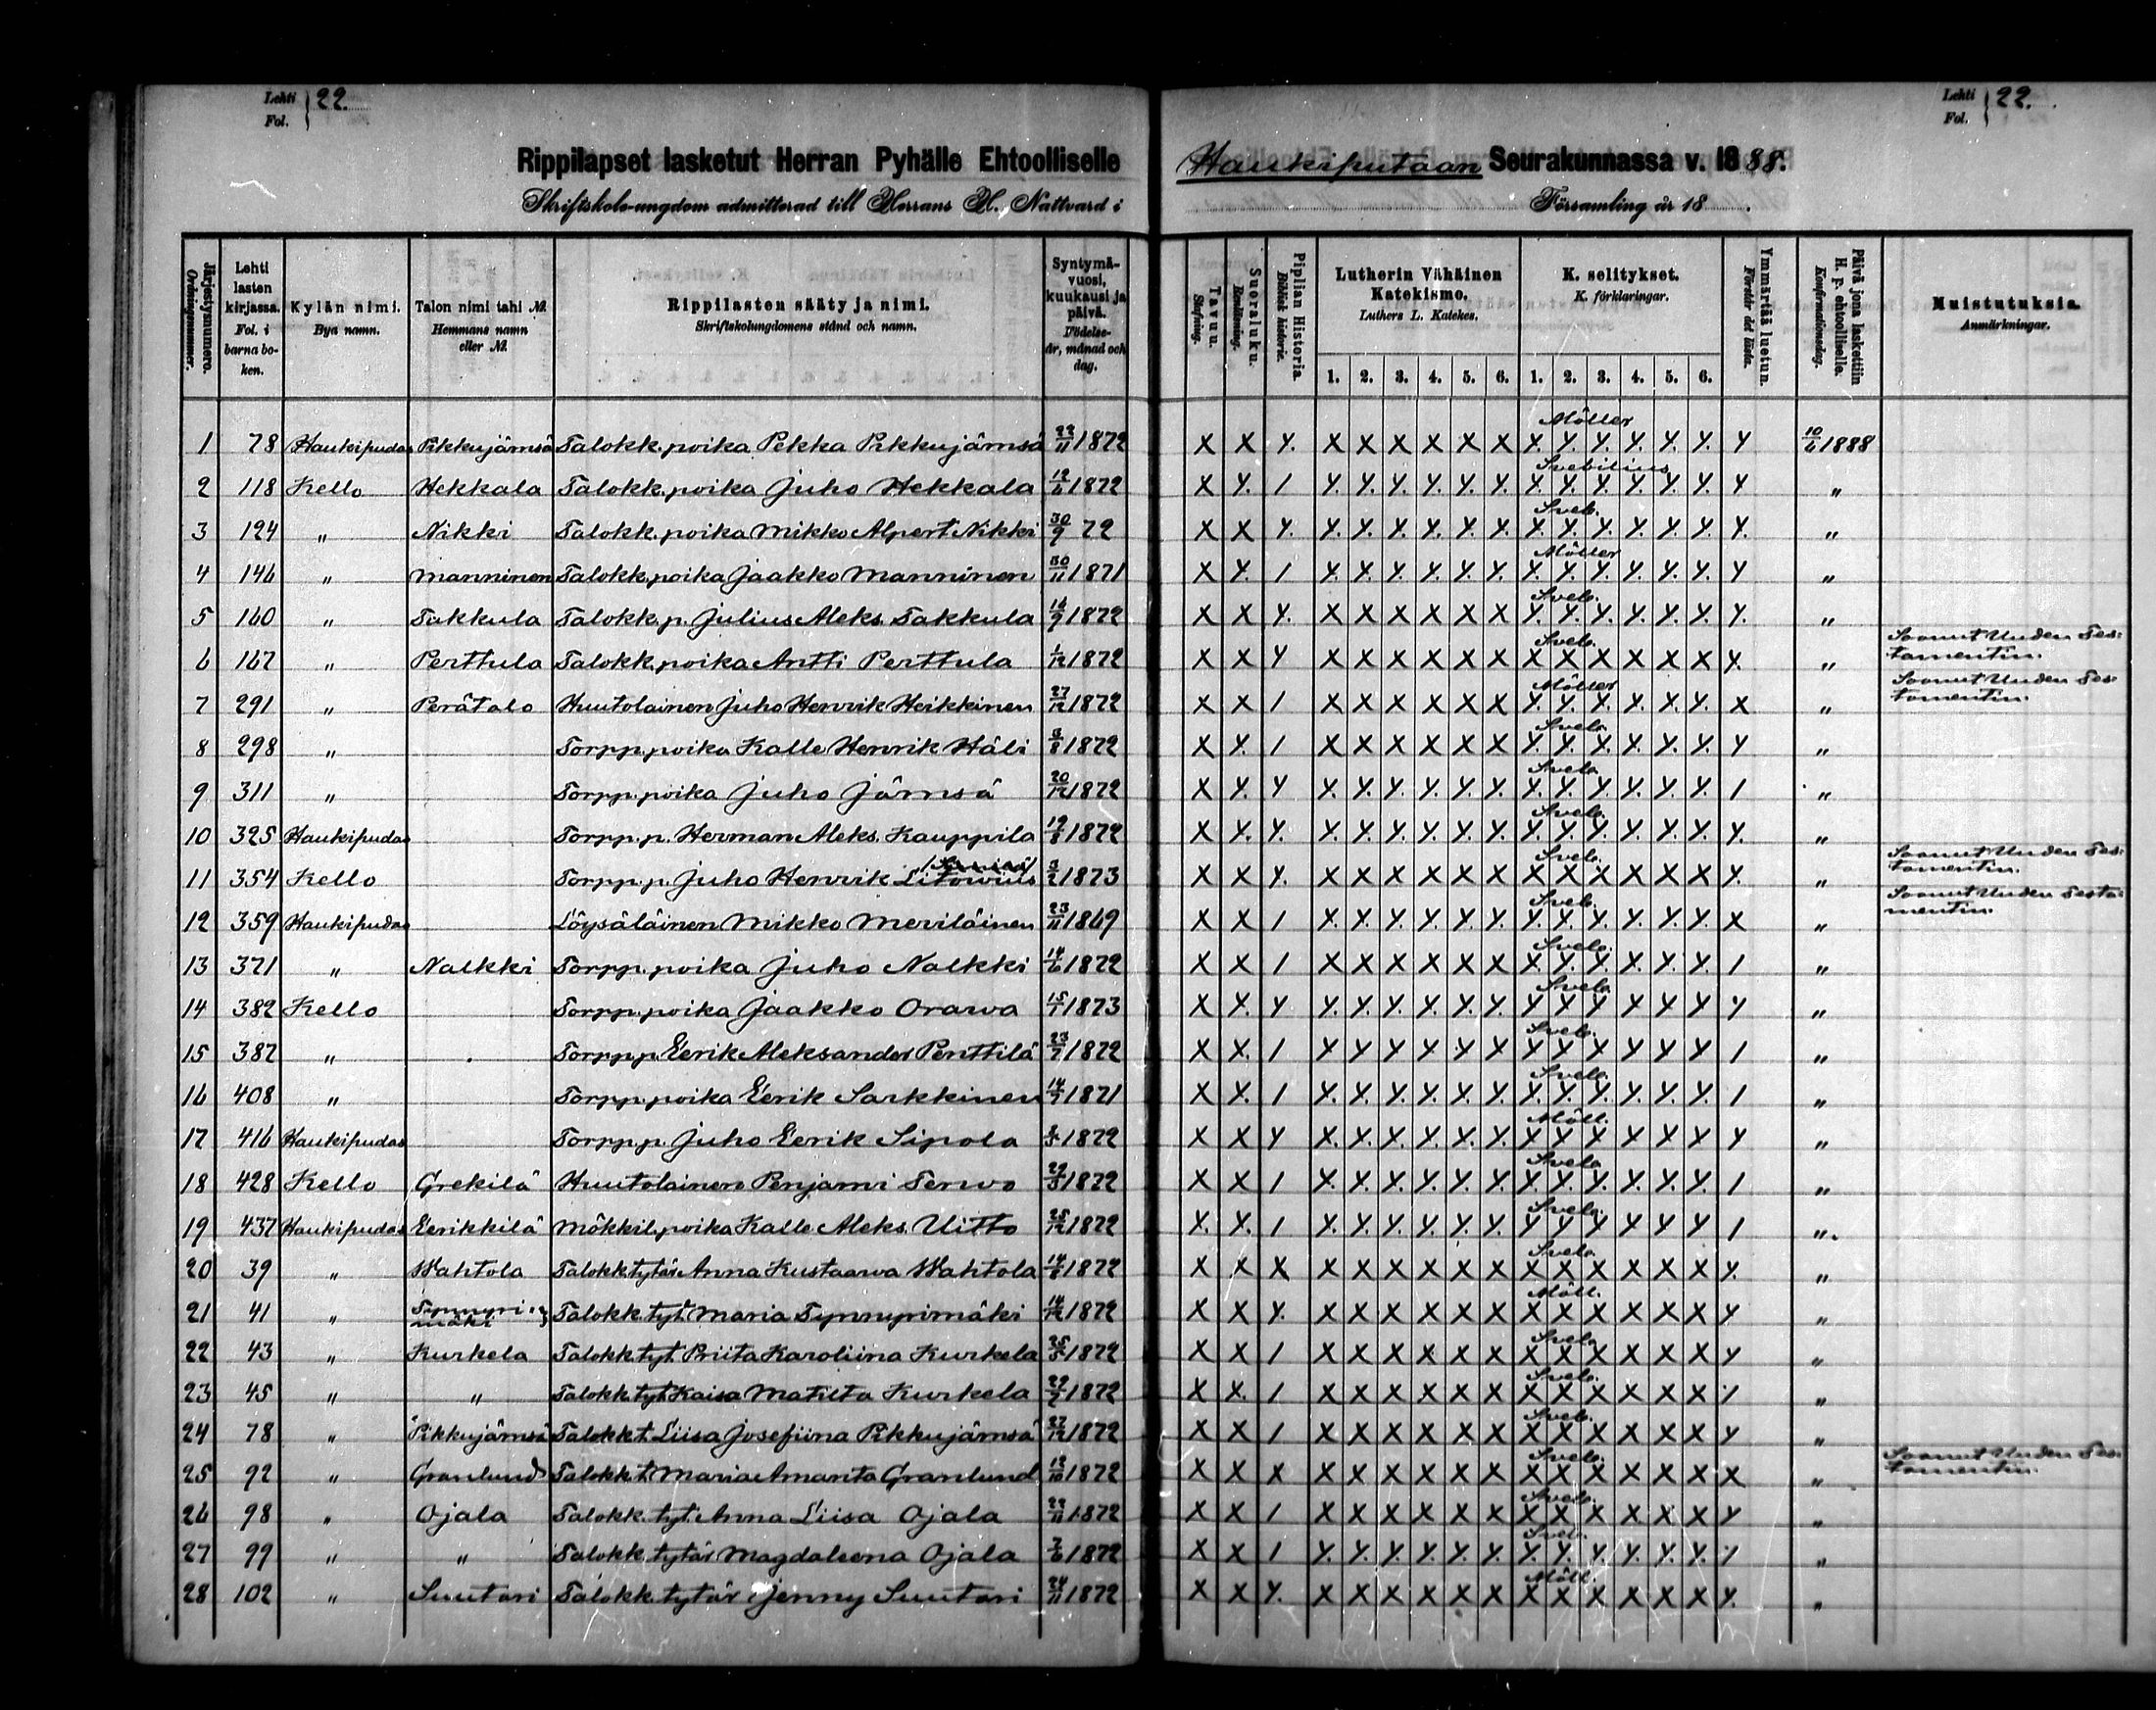 Lehti 22.
Fol.
Lehti 22.
Fol.
Rippilapset lasketut Herran Pyhälle Ehtoolliselle Haukiputaan Seurakunnassa v. 1888.
Skriftskole-ungdom admitterad till Herrans H. Nattvard i Församling år 18 .
Järjestysnumero. Ordningsnummer. Lehti lasten kirjassa. Fol. i barnaboken. Kylän nimi. Bya namn. Talon nimi tahi №. Hemmans namn eller №. Rippilasten sääty ja nimi. Skriftskolungdomens stånd och namn. Syntymävuosi, kuukausi ja päivä. Födelseår, månad och dag. Tavuu. Stafning. Suoraluku. Renläsning. Piplian Historia. Biblisk historie. Lutherin Vähäinen Katekismo. Luthers L. Katekes. K. selitykset. K. förklaringar. Ymmärtää luetun. Förstår det lästa. Päivä jona laskettiin H. P. ehtoolliselle. Konfirmationsdag. Muistutuksia. Anmärkningar.
1. 2. 3. 4. 5. 6. 1. 2. 3. 4. 5. 6.
1 78 Haukipudas Pikkujämsä Talokk. poika Pekka Pikkujämsä 22/11 1872 X X Y. X X X X X X Möller X. Y. Y. Y. Y. Y. Y 10/6 1888
2 118 Kello Hekkala Talokk. poika Juho Hekkala 12/6 1872 X Y. 1 Y. Y. Y. Y. Y. Y. Svebilius X. Y. Y. Y. Y. Y. Y „
3 124 „ Nikki Talokk. poika Mikko Alpert Nikki 30/9 72 X X Y. Y. Y. Y. Y. Y. Y. Sveb. X. Y. Y. Y. Y. Y. Y. „
4 146 „ Manninen Talokk. poika Jaakko Manninen 30/11 1871 X Y. 1 Y. Y. Y. Y. Y. Y. Möller Y. Y. Y. Y. Y. Y. Y „
5 160 „ Takkula Talokk. p. Julius Aleks. Takkula 16/9 1872 X X Y. X X X X X X Sveb. Y. Y. Y. Y. Y. Y. Y. „
6 167 „ Perttula Talokk. poika Antti Perttula 1/12 1872 X X Y X X X X X X Sveb. X X X X X X Y. „ Saanut Uuden Testamentin.
7 291 „ Perätalo Huutolainen Juho Henrik Heikkinen 27/12 1872 X X 1 X X X X X X Möller Y. Y. Y. X. X. Y. X „ Saanut Uuden Testamentin.
8 298 „ Torpp. poika Kalle Henrik Häli 3/8 1872 X Y. 1 X X X X X X Sveb. Y. Y. X. Y. Y. Y. Y „
9 311 „ Torpp. poika Juho Jämsä 20/12 1872 X Y. Y X. Y. Y. Y. Y. Y. Sveb. X. Y. Y. Y. Y. Y. 1 „
10 325 Haukipudas Torpp. p. Herman Aleks. Kauppila 19/8 1872 X X. Y. Y. Y. Y. Y. Y. Y. Sveb. Y. Y. Y. Y. Y. Y. Y. „
11 354 Kello Torpp. p. Juho Henrik Litowius 3/2 1873 X X Y. X X X X X X Sveb. X X X X X X Y. „ Saanut Uuden Testamentin.
12 359 Haukipudas Löysäläinen Mikko Meriläinen 23/11 1869 X X 1 Y. Y. Y. Y. Y. Y. Sveb. X. Y. Y. Y. Y. Y. X „ Saanut Uuden Testamentin.
13 371 „ Nalkki Torpp. poika Juho Nalkki 14/6 1872 X X 1 X X X X X X Sveb. X. Y. Y. X. Y. Y. 1 „
14 382 Kello Torpp. poika Jaakko Orawa 15/1 1873 X X. Y Y. Y. Y. Y. Y. Y. Sveb. Y X Y Y X Y Y „
15 387 „ Torpp. p. Eerik Aleksander Penttilä 23/7 1872 X X. 1 X Y Y Y Y X Sveb. X Y X Y Y X 1 „
16 408 „ Torpp. poika Eerik Sarkkinen 14/7 1871 X X. 1 Y. Y. Y. Y. Y. Y. Sveb. Y. X. Y. Y. Y. Y. 1 „
17 416 Haukipudas Torpp. p. Juho Eerik Sipola 1872 X X Y X. X. Y. Y. Y. Y. Möll. Y X X X X X Y „
18 428 Kello Grekilä Huutolainen Penjami Terwo 1872 X X 1 X. Y. Y. Y. Y. Y. Sveb. X. Y. Y. Y. Y. Y. 1 „
19 437 Haukipudas Eerikkilä Mökkil. poika Kalle Aleks. Uitto 25/12 1872 X. X. 1 X. Y. Y. Y. Y. Y. Sveb. Y Y X Y Y Y 1 „
20 39 „ Wahtola Talokk. tytär Anna Kustaawa Wahtola 1872 X X X X X X X X X Sveb. X X X X X X Y. „
21 41 „ Tynnyrimäki Talokk. tyt. Maria Tynnyrimäki 14/12 1872 X X Y. X X X X X X Möll. X X X X X X Y „
22 43 „ Kurkela Talokk. tyt. Priita Karoliina Kurkela 25/5 1872 X X 1 X X X X X X Sveb. X X X X X X Y „
23 45 „ „ Talokk. tyt. Kaisa Matilta Kurkela 1872 X X. 1 X X X X X X Sveb. X X X X X X 1 „
24 78 „ Pikkujämsä Talokk. t. Liisa Josefiina Pikkujämsä 27/12 1872 X X 1 X X X X X X Sveb. X X X X X X Y „
25 92 „ Granlund Talokk. t. Maria Amanta Granlund 13/10 1872 X X X X X X X X X Sveb. X X X X X X X „ Saanut Uuden Testamentin.
26 98 „ Ojala Talokk. tyt. Anna Liisa Ojala 22/11 1872 X X 1 X X X X X X Sveb. X X X X X X Y „
27 99 „ „ Talokk. tytär Magdaleena Ojala 7/6 1872 X X 1 Y. Y. Y. Y. Y. Y. Sveb. Y. Y. Y. Y. Y. Y. 1 „
28 102 „ Suutari Talokk. tytär Jenny Suutari 24/11 1872 X X Y. X X X X X X Möll. X X X X X X Y. „